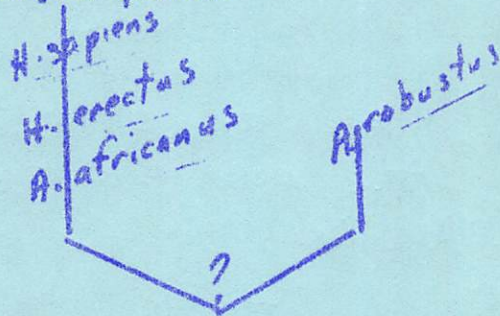 H. sapiens
H. erectus
A. africanus
A. robustus
?